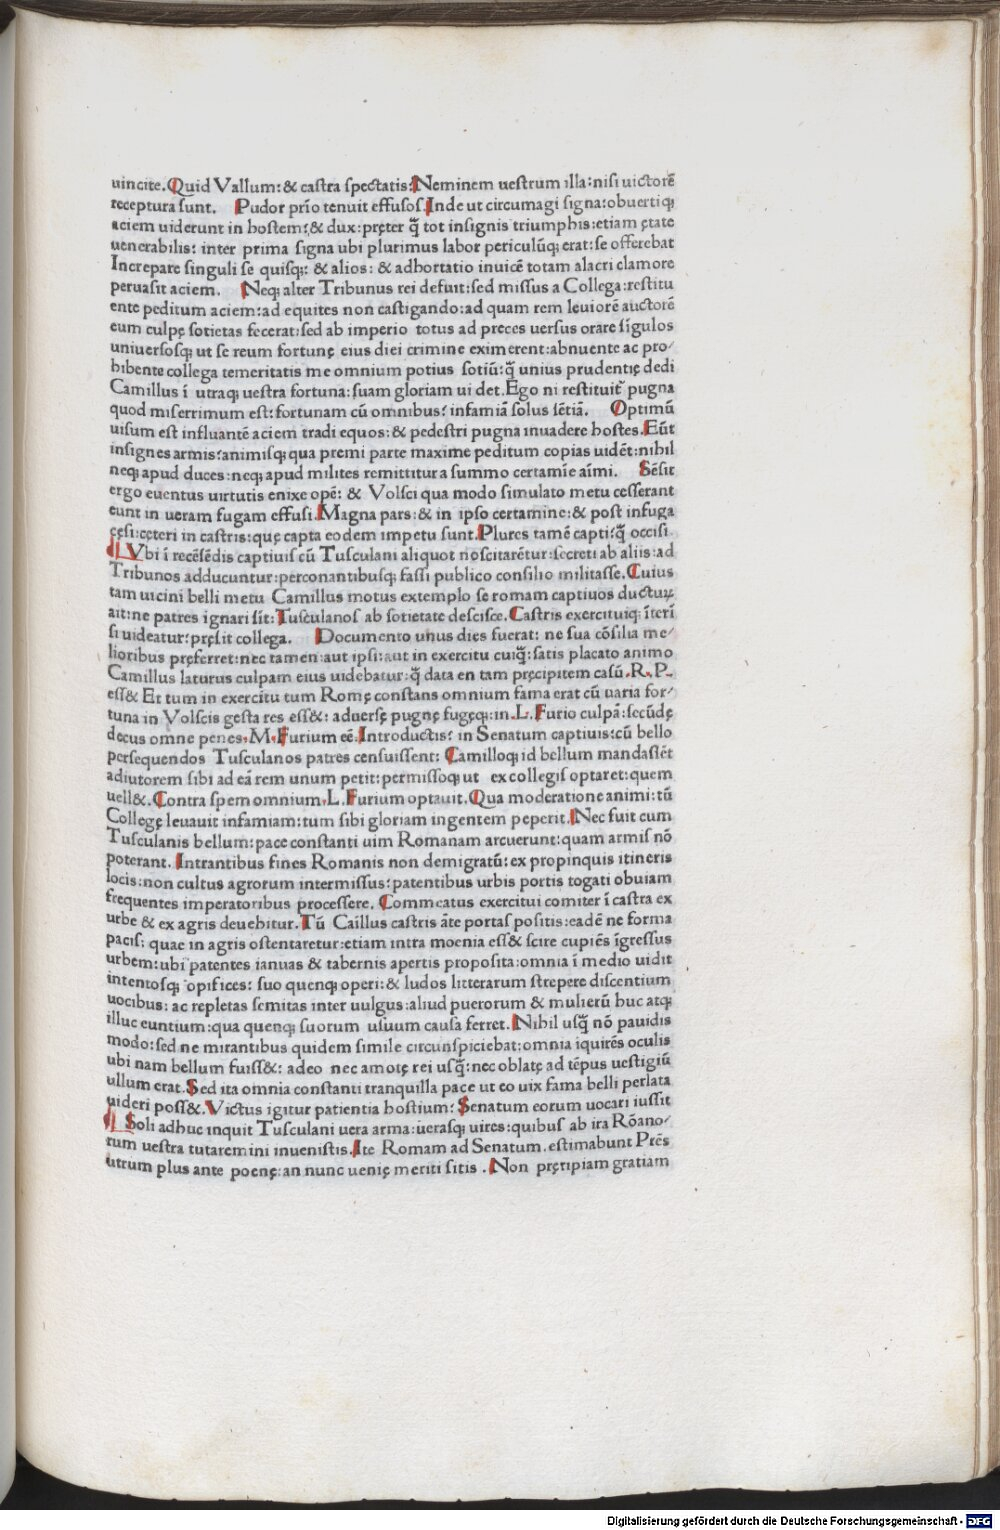 uincite.Quid Vallum:& castra spectatis:Neminem uestrum illa:nisi uictorē
receptura sunt. Pudor prīo tenuit effusos.Inde ut circumagi signa:obuertiqꝫ
aciem uiderunt in hostem:& dux:pręter q̄ tot insignis triumphis:etiam ętate
uenerabilis: inter prima signa ubi plurimus labor periculūqꝫ erat:se offerebat
Increpare singuli se quisqꝫ: & alios: & adhortatio inuicē totam alacri clamore
peruasit aciem. Neqꝫ alter Tribunus rei defuit:sed missus a Collega:restitu
ente peditum aciem:ad equites non castigando:ad quam rem leuiorē auctorē
eum culpę sotietas fecerat:sed ab imperio totus ad preces uersus orare sīgulos
uniuersosqꝫ ut se reum fortunę eius diei crimine eximerent:abnuente ac pro-
hibente collega temeritatis me omnium potius sotiū:q̄ unius prudentię dedi
Camillus ī utraqꝫ uestra fortuna:suam gloriam ui det.Ego ni restituit̄ pugna
quod miserrimum est:fortunam cū omnibus: infamiā solus sētiā. Optimū
uisum est influantē aciem tradi equos:& pedestri pugna inuadere hostes.Eūt
insignes armis:animisqꝫ qua premi parte maxime peditum copias uidēt:nihil
neqꝫ apud duces:neqꝫ apud milites remittitur a summo certamīe aīmi. Sēsit
ergo euentus uirtutis enixe opē: & Volsci qua modo simulato metu cesserant
eunt in ueram fugam effusi.Magna pars:& in ipso certamine:& post infuga
cęsi:ceteri in castris:quę capta eodem impetu sunt.Plures tamē capti:q̄ occisi
Vbi ī recēsēdis captiuis cū Tusculani aliquot noscitarētur:secreti ab aliis:ad
Tribunos adducuntur:perconantibusqꝫ fassi publico consilio militasse.Cuius
tam uicini belli metu Camillus motus extemplo se romam captiuos ductuꝝ
ait:ne patres ignari sīt:Tusculanos ab sotietate descisce.Castris exercituiqꝫ īterī
si uideatur:pręsit collega. Documento unus dies fuerat: ne sua cōsilia me-
lioribus pręferret:nec tamen aut ipsi:aut in exercitu cuiq̄:satis placato animo
Camillus laturus culpam eius uidebatur:q̄ data en tam pręcipitem casū.R.P.
ess& Et tum in exercitu tum Romę constans omnium fama erat cū uaria for-
tuna in Volscis gesta res ess&: aduersę pugnę fugęqꝫ:in.L.Furio culpā:secūdę
decus omne penes.M.Furium eē.Introductis: in Senatum captiuis:cū bello
persequendos Tusculanos patres censuissent: Camilloqꝫ id bellum mandassēt
adiutorem sibi ad eā rem unum petit:permissoqꝫ ut ex collegis optaret:quem
uell&.Contra spem omnium.L.Furium optauit.Qua moderatione animi:tū
Collegę leuauit infamiam:tum sibi gloriam ingentem peperit.Nec fuit cum
Tusculanis bellum:pace constanti uim Romanam arcuerunt:quam armis nō
poterant. Intrantibus fines Romanis non demigratū:ex propinquis itineris
locis:non cultus agrorum intermissus:patentibus urbis portis togati obuiam
frequentes imperatoribus processere. Commeatus exercitui comiter ī castra ex
urbe & ex agris deuehitur.Tū Caīllus castris āte portas positis:eadē ne forma
pacis: quae in agris ostentaretur:etiam intra moenia ess& scire cupiēs īgressus
urbem:ubi patentes ianuas & tabernis apertis proposita:omnia ī medio uidit
intentosqꝫ opifices: suo quenqꝫ operi:& ludos litterarum strepere discentium
uocibus: ac repletas semitas inter uulgus:aliud puerorum & mulierū huc atqꝫ
illuc euntium:qua quenqꝫ suorum usuum causa ferret.Nihil usq̄ nō pauidis
modo:sed ne mirantibus quidem simile circunspiciebat:omnia īquirēs oculis
ubi nam bellum fuiss&: adeo nec amotę rei usq̄:nec oblatę ad tēpus uestigiū
ullum erat.Sed ita omnia constanti tranquilla pace ut eo uix fama belli perlata
uideri poss&.Victus igitur patientia hostium: Senatum eorum uocari iussit
Soli adhuc inquit Tusculani uera arma:uerasqꝫ uires:quibus ab ira Rōano-
rum uestra tutaremini inuenistis.Ite Romam ad Senatum.estimabunt Prēs
utrum plus ante poenę:an nunc uenię meriti sitis .Non pręripiam gratiam
Digitalisierung gefördert durch die Deutsche Forschungsgemeinschaft - DFG